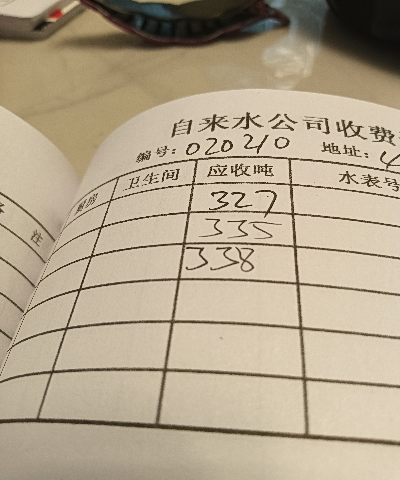 自来水公司收费
编号：020210 地址：4
厨房 卫生间 应收吨 水表号
327
335
338
注